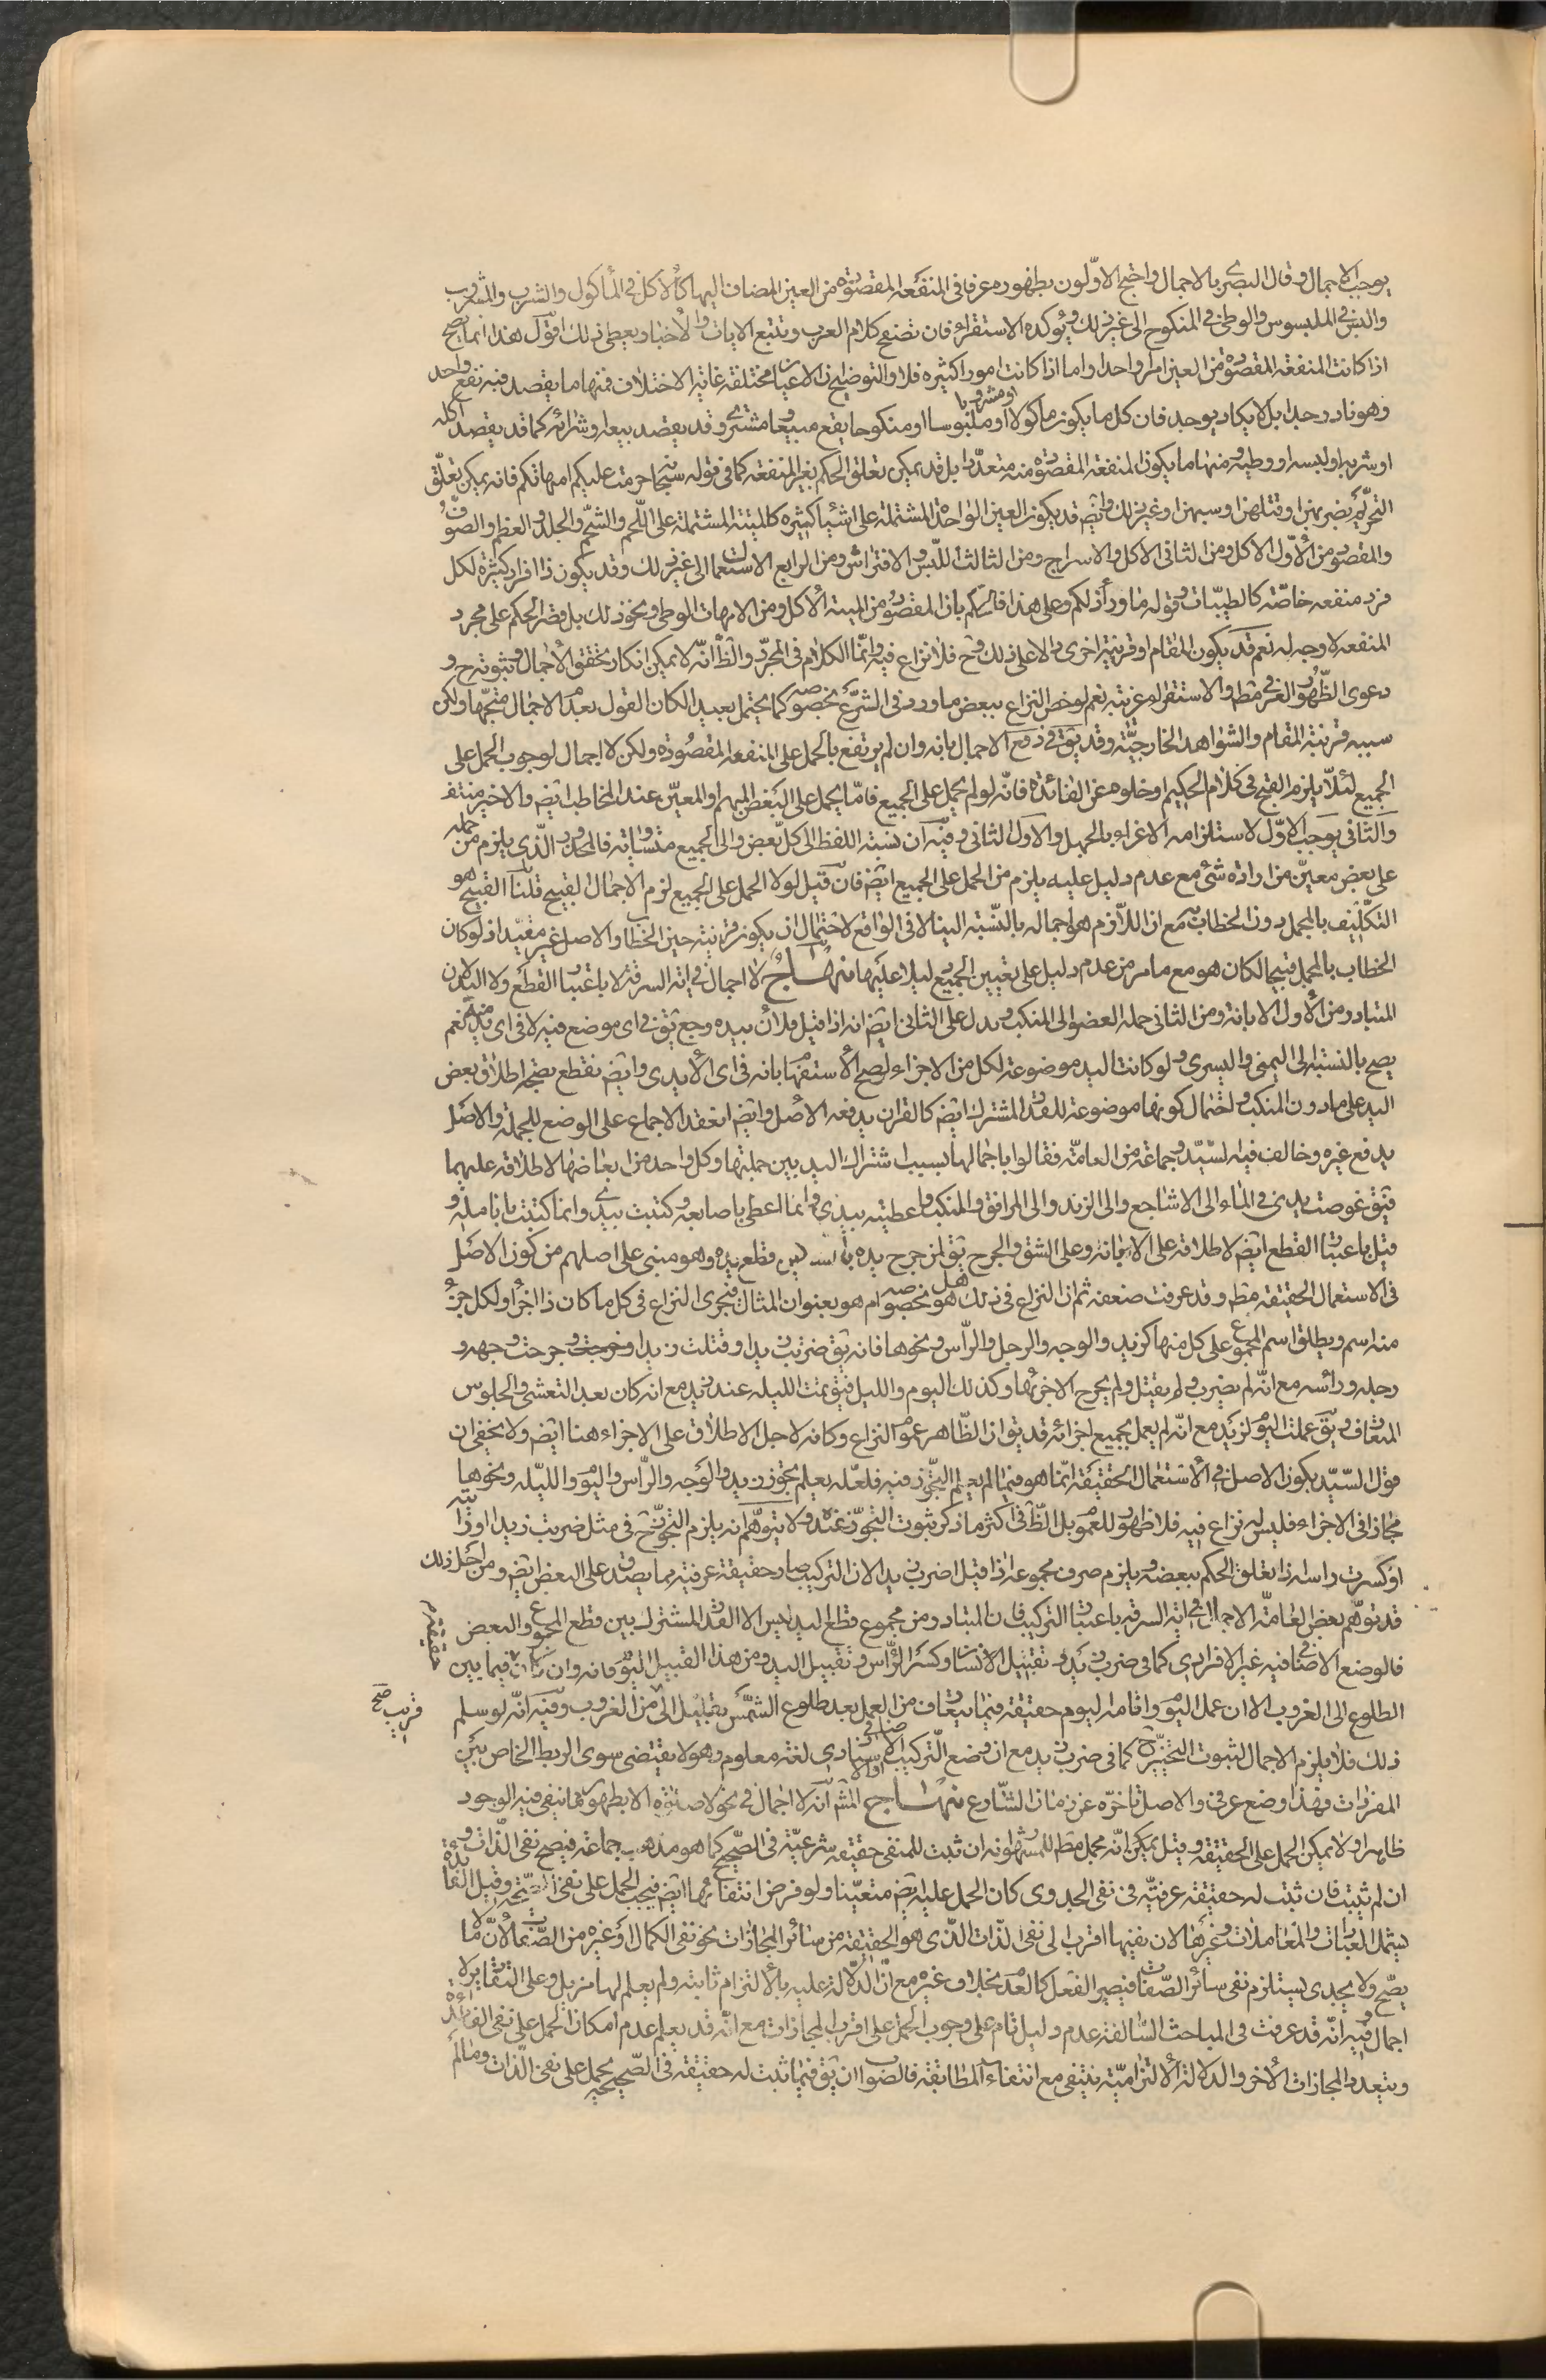 يوجب الاجمال وقال البصرى بالاجمال واحتج الاوّلون بظهوره عرفا فى المنفعة المقصودة من العين المضاف اليها كالاكل فى المأكول والشرب والمشروب
واللبس فى الملبوس والوطى فى المنكوح الى غير ذلك ويؤكده الاستقراء فان تصفح كلام العرب وتتبع الايات والاخبار يعطى ذلك اقول هذا انما يصح
اذا كانت المنفعة المقصودة من العين امرا واحدا واما اذا كانت امورا كثيره فلا والتوضيح ان الاعيان مختلفة غاية الاختلاف فمنها ما يقصد فيه نفع واحد
وهو نادر جدا بل لا يكاد يوجد فان كل ما يكون مأكولا او مشروبا او ملبوسا او منكوحا يقع مبيعا ومشترى وقد يقصد بيعه او شرائه كما قد يقصد اكله
او شربه او لبسه او وطيه ومنها ما يكون المنفعة المقصودة منه متعددا بل قد يمكن تعلق الحكم بغير المنفعة كما فى قوله سبحانه حرمت عليكم امهاتكم فانه يمكن تعلّق
التحريم بضربهن او قتلهن او سبهن او غير ذلك وايضم قد يكون العين الواحدة المشتملة على اشياء كثيره كالميتة المشتملة على اللحم والشحم والجلد والعظم والصوف
والمقصود من الاوّل الاكل ومن الثانى الاكل والاسراج ومن الثالث اللبس والافتراش ومن الرابع الاستعمال الى غير ذلك وقد يكون ذا افراد كثيرة لكل
فرد منفعة خاصّة كالطيبات وقوله ما وراء ذلكم وعلى هذا فالحكم بان المقصود من الميتة الاكل ومن الامهات الوطى ونحو ذلك بل قصر الحكم على مجرد
المنفعة لا وجه له نعم قد يكون المقام او قرينة اخرى دالا على ذلك وح فلا نزاع فيه وانّما الكلام فى المجرّد والظ انّه لا يمكن انكار تحقق الاجمال وثبوته ح و
دعوى الظهور العرفى مطم والاستقراء غريبة نعم لو خص النزاع ببعض ما ورد فى الشرع بخصوصه كما يحتمل بعيدا لكان القول بعدم الاجمال متجها ولكن
سببه قرينة المقام والشواهد الخارجيّة وقد يق فى دفع الاجمال بانه وان لم يرتفع بالحمل على المنفعة المقصودة ولكن لا اجمال لوجوب الحمل على
الجميع لئلا يلزم القبح فى كلام الحكيم او خلوه عن الفائدة فانّه لو لم يحمل على الجميع فامّا يحمل على البعض المبهم او المعيّن عند المخاطب ايضم والاخير منتف
والثانى يوجب الاوّل لاستلزامه الاغراء بالجهل والاول الثانى وفيه ان نسبة اللفظ الى كل بعض والى الجميع متساوية فالمحذور الّذى يلزم من حمله
على بعض معيّن من ارادة شئ مع عدم دليل عليه يلزم من الحمل على الجميع ايضم فان قيل لولا الحمل على الجميع لزم الاجمال القبيح قلنا القبيح هو
التكليف بالمجمل دون الخطاب به مع ان اللازم هو اجماله بالنسبة الينا لا فى الواقع لاحتمال ان يكون قرينة حين الخطاب والاصل غير مفيد اذ لو كان
الخطاب بالمجمل قبيحا لكان هو مع ما مر من عدم دليل على تعيين الجميع دليلا عليها منهاج لا اجمال فى اية السرقة لا باعتبار القطع ولا اليد لان
المتبادر من الاول الابانة ومن الثانى جملة العضو الى المنكب ويدل على الثانى ايضم انه اذا قيل فلان بيده وجع يق فى اى موضع فيه لا فى اى يد منه نعم
يصح بالنسبة الى اليمنى واليسرى ولو كانت اليد موضوعة لكل من الاجزاء لصح الاستفهام بانه فى اى الايدى وايضم نقطع بصحة اطلاق بعض
اليد على مادون المنكب واحتمال كونها موضوعة للقدر المشترك ايضم كالقران يدفعه الاصل وايضم انعقد الاجماع على الوضع للجملة والاصل
يدفع غيره وخالف فيه السّيّد وجماعة من العامّة فقالوا باجمالها بسبب اشتراك اليد بين جملتها وكل واحد من ابعاضها لاطلاقه عليهما
فيق غوصت يدى فى الماء الى الاشاجع والى الزند والى المرافق والمنكب واعطيته بيدى وانما اعطى باصابعه وكتبت بيدى وانما كتبت بانامله و
قيل باعتبار القطع ايضم لاطلاقه على الابانة وعلى الشق والجرح يق لمن جرح يده قطع يده وهو مبنى على اصلهم من كون الاصل
فى الاستعمال الحقيقة مطم وقد عرفت ضعفه ثم ان النزاع فى ذلك هل هو بخصوصه ام هو بعنوان المثال فيجرى النزاع فى كل ما كان ذا اجزاء ولكل جزء
منه اسم ويطلق اسم المجموع على كل منها كزيد والوجه والرجل والرأس ونحوها فانه يق ضربت زيدا وقتلت زيدا وجرحت وجهه و
رجله ورأسه مع انّه لم يضرب ولم يقتل ولم يجرح الا جزئها وكذلك اليوم والليل فيق بت الليله عند زيد مع انه كان بعد التعشى والجلوس
المتعارف ويق عملت اليوم لزيد مع انّه لم يعمل بجميع اجزائه قد يق ان الظاهر عموم النزاع وكانه لاجل الاطلاق على الاجزاء هنا ايضم ولا يخفى ان
قول السّيّد بكون الاصل فى الاستعمال الحقيقة انّما هو فيما لم يعلم التجوز فيه فلعله يعلم تجوز زيد والوجه والرأس واليوم والليله ونحوها
مجازا فى الاجزاء فليس له نزاع فيه فلا ظهور للعموم بل الظ فى اكثر ما ذكر ثبوت التجوز عنده ولا يتوهم انه يلزم التجوز ح فى مثل ضربت زيدا او رايته
او كسرت راسه اذا تعلق الحكم ببعضه ويلزم صرف مجموعه اذا قيل اضرب زيدا لان التركيب صار حقيقة عرفية بما يصدق على البعض ايضم ومن اجل ذلك
قد توهّم بعض العامّة الاجمال فى اية السرقة باعتبار التركيب فان المتبادر من مجموع قطع اليد ليس الا القدر المشترك بين قطع المجموع والبعض
فالوضع الاضافى فيه غير الافرادى كما فى ضرب زيد وتقبيل الانسان وكسر الرأس وتقبيل اليد ومن هذا القبيل اليوم فانه وان كان حقيقة فيما بين
الطلوع الى الغروب الا ان عمل اليوم واقامة اليوم حقيقة فيما يتعارف من العمل بعد طلوع الشمس بقليل الى قريب صح من الغروب وفيه انّه لو سلم
ذلك فلا يلزم الاجمال لثبوت التخيير ح كما فى ضرب زيد مع ان وضع التركيب الاضافى او الاسنادى لغة معلوم وهو لا يقتضى سوى الربط الخاص بين
المفردات فهذا وضع عرفى والاصل تاخره عن زمان الشارع منهاج المشم انه لا اجمال فى نحو لا صلوة الا بطهور مما ينفى فيه الوجود
ظاهرا ولا يمكن الحمل على الحقيقة وقيل يمكن انّه مجمل مطم للمشهور انه ان ثبت للمنفى حقيقة شرعيّة فى الصّحيح كما هو مذهب جماعة فيصح نفى الذات و
ان لم يثبت فان ثبت له حقيقة عرفيّة فى نفى الجدوى كان الحمل عليه ايضم متعيّنا ولو فرض انتفائهما ايضم فيجب الحمل على نفى الصّحة وقيل الفائدة
ليشمل العبادات والمعاملات وغيرها لان نفيها اقرب الى نفى الذات الّذى هو الحقيقة من سائر المجازات نحو نفى الكمال او غيره من الصّفات لانّ ما لا
يصّح ولا يجدى يستلزم نفى سائر الصّفات فيصير الفعل كالعدم بخلاف غيره مع انّ الدّلالة عليه بالالتزام ثابتة ولم يعلم لها مزيل وعلى التقادير لا
اجمال وفيه انّه قد عرفت فى المباحث السّالفة عدم دليل تام على وجوب الحمل على اقرب المجازات مع انّه قد يعلم عدم امكان الحمل على نفى الفائدة
ويتعدد المجازات الاخر والدلالة الالتزاميّة ينتفى مع انتفاء المطابقة فالصّواب ان يق فيما ثبت له حقيقة فى الصّحيح يحمل على نفى الذات وما لم